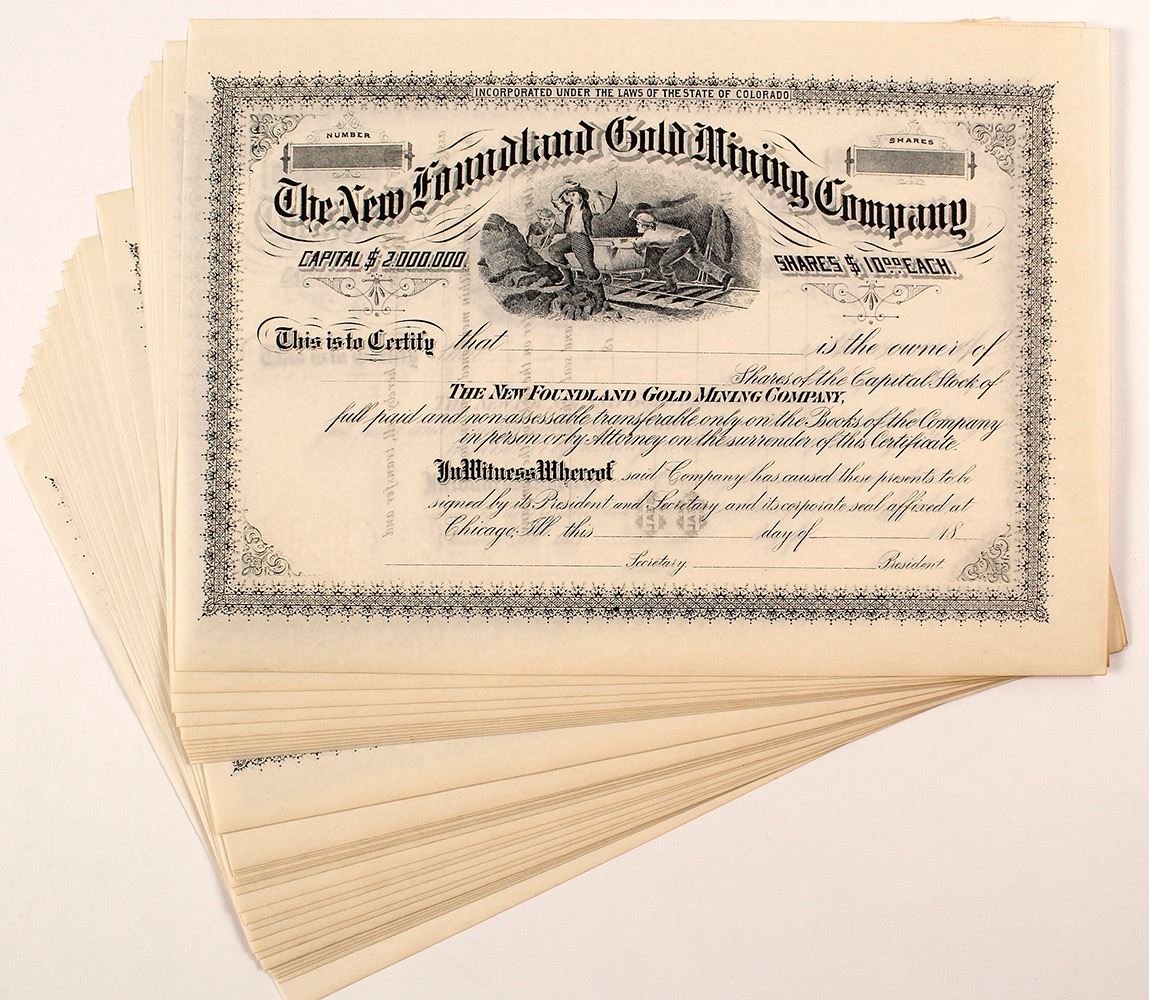 INCORPORATED UNDER THE LAWS OF THE STATE OF COLORADO
NUMBER
SHARES
The New Foundland Gold Mining Company
CAPITAL $ 2.000.000
SHARES $ 10.00 EACH.
This is to Certify that is the owner of
Shares of the Capital Stock of
THE NEW FOUNDLAND GOLD MINING COMPANY,
full paid and non assessable transferable only on the Books of the Company
in person or by Attorney on the surrender of this Certificate.
In Witness Whereof said Company has caused these presents to be
signed by its President and Secretary and its corporate seal affixed at
Chicago, Ill. this day of 18
Secretary. President.